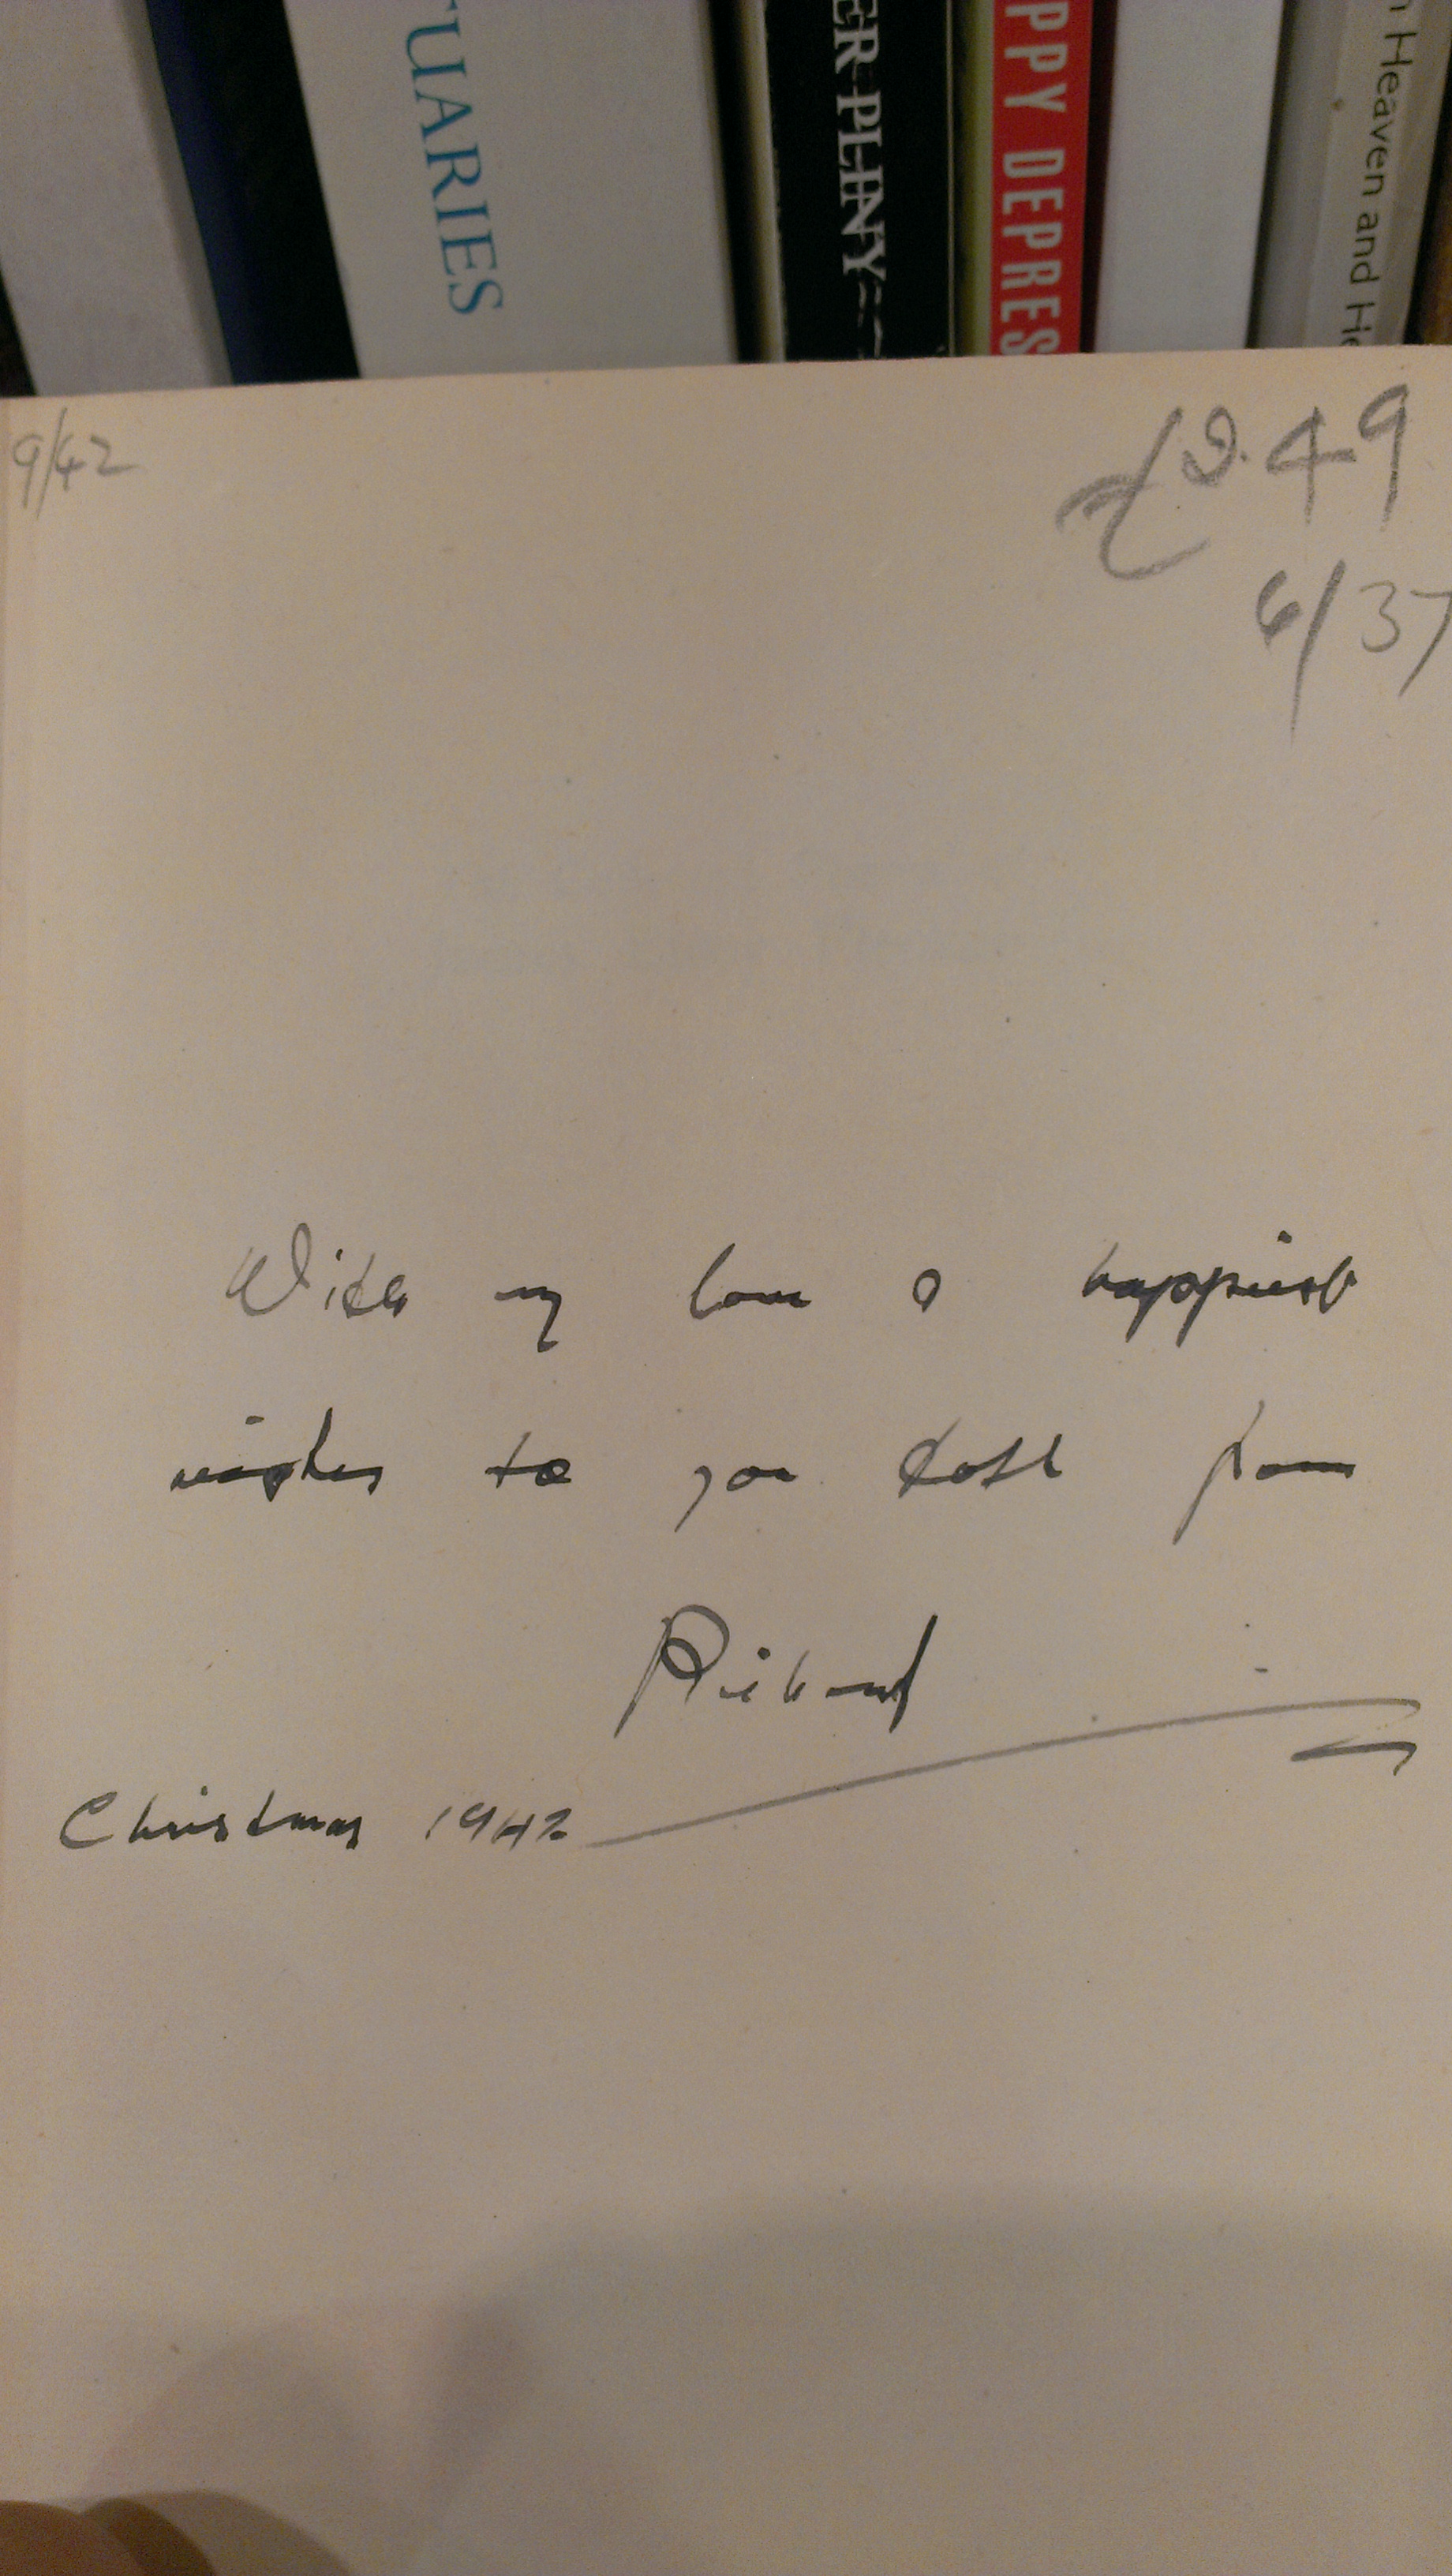 TUARIES
ER PLINY
PPY DEPRES
n Heaven and He
9/42
£2.49
6/37
With my love & happiest
wishes to you both from
Richard
Christmas 1942